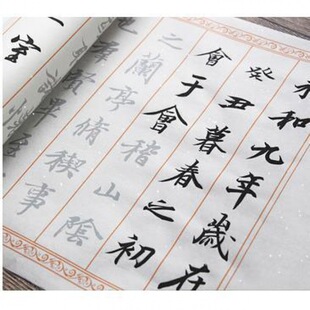 永和九年歲在
癸丑暮春之初
會于會稽山陰
之蘭亭脩禊事
也羣賢畢
一室